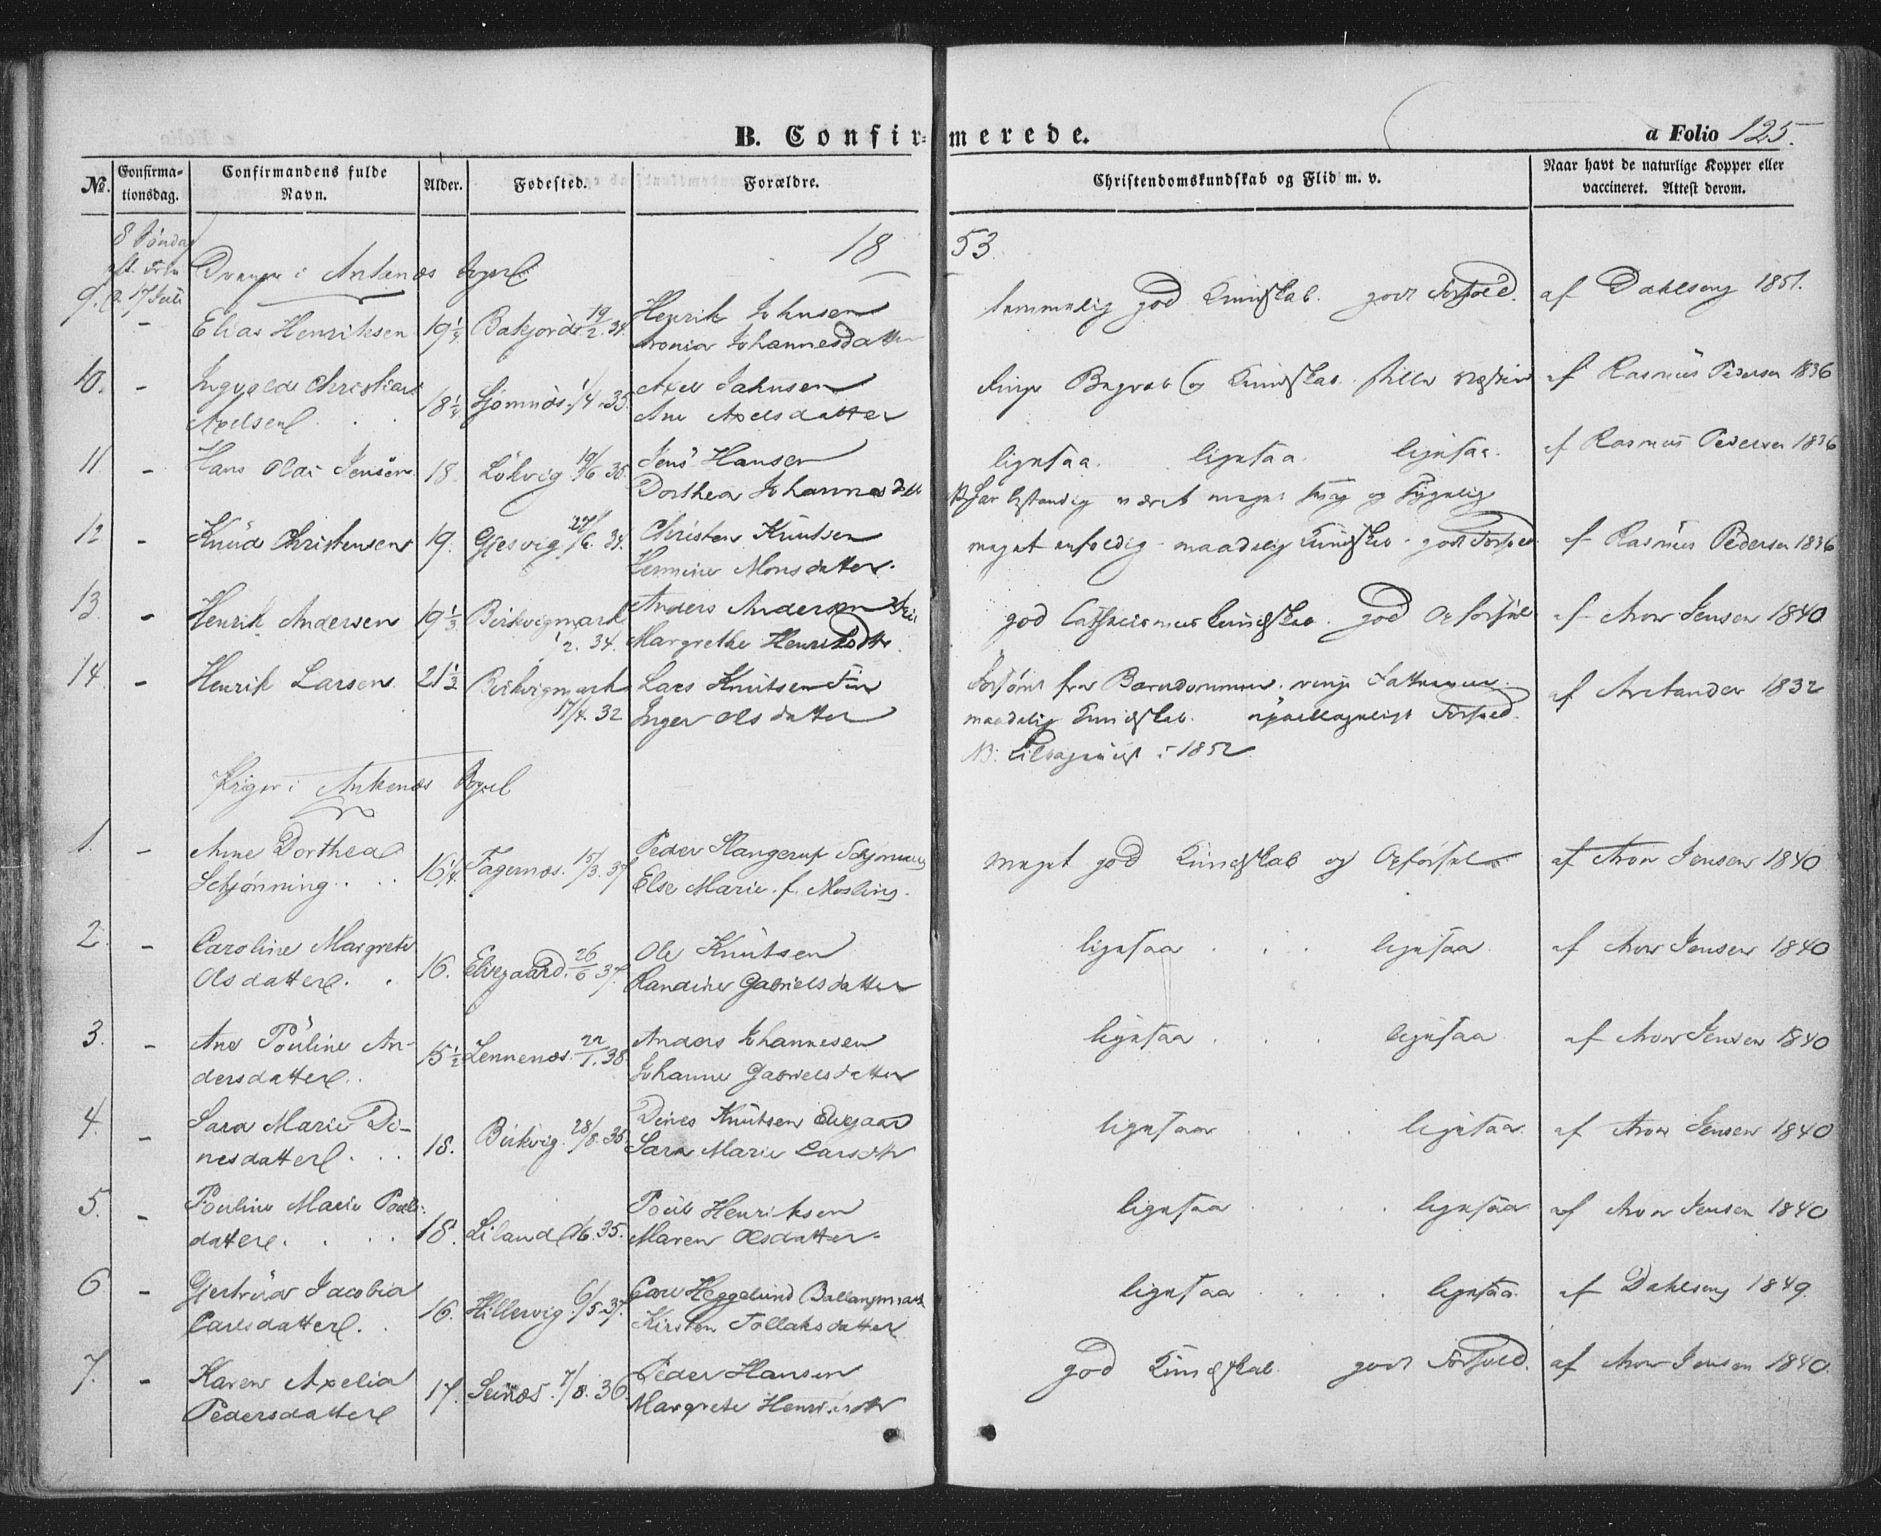 B. Confirmerede.
a Folio 125.
No.
Confirmationsdag.
Confirmandens fulde Navn.
Alder.
Fødested.
Forældre.
Christendomskundskab og Flid m. v.
Naar havt de naturlige Kopper eller vaccineret. Attest derom.
8 Søndag
eft. Trin
17 Juli
Drenge i Ankenæs Sogn
1853.
9. - Elias Henriksen 19 Bakjord 19/2. 34. Henrik Johnsen
Johannesdatter
temmelig god Kundskab. godt Forhold. af Dahlseng 1851.
10. - Ingvald Christian
Axelsen 18 1/4 Sjomnæs 1/4. 35. Axel Jahnsen
Ane Axelsdatter
ringe Begreb og Kundskab. stille af Rasmus Pedersen 1836
11. - Hans Olai Jensen 18. Løkvig 35. Jens Hansen
Dorthea Johannesdtt
ligesaa. ligesaa. ligesaa. af Rasmus Pedersen 1836
NB har bestandig været meget og
12 - Knud Christensen 19. Gjesvig 34. Christen Knutsen
Hermine Monsdatter.
meget enfoldig - maadelig Kundskab - godt Forhold af Rasmus Pedersen 1836
13. - Henrik Andersen 19 1/3 Beisvigmark
2. 34. Anders Andersen
Margrethe Henriksdtr.
god Cathecismus kundskab. god Opførsel af Aron Jensen 1840
14. - Henrik Larsen. 21 1/3 Beisvigmark
17/4. 32 Lars Knutsen Fin
Inger Olsdatter
forsømt fra Barndommen. ringe Fatteevne.
maadelig Kundskab. Forhold. af Arctander 1832
NB: 1852
Piger i Ankenæs Sogn
1. - Anne Dorthea
Schjønning . . . 16 1/4. Fagernæs. 15/3. 37 Peder Hangerup Schjønning
Else Marie f. Mosling.
meget god Kundskab og Opførsel af Aron Jensen 1840
2. - Caroline Margrete
Olsdatter. . 16. Elvegaard. 26/6 37. Ole Knutsen
Randine Gabrielsdatter
ligesaa . . ligesaa. af Aron Jensen 1840
3. - Ane Pouline An-
dersdatter. . 15 1/2 Lennenæs. 22/1. 38. Anders Johannesen
Johanne Gabrielsdatter
ligesaa . . ligesaa af Aron Jensen 1840
4. - Sara Marie Di-
nesdatter. . . 18. Beisvig. 28/8. 35 Dines Knutsen Elvegaard
Sara Marie Larsdtr
ligesaa . . . ligesaa. af Aron Jensen 1840
5. - Pouline Marie Pouls-
datter. . . . 18. Liland 35. Poul Henriksen
Maren Olsdatter.
ligesaa . . . ligesaa af Aron Jensen 1840
6 - Gjertrud Jacobia
Carlsdatter. . 16. Hillervig. 6/5. 37. Carl Heggelund Ballangsmark
Kirsten Tollaksdatter
ligesaa . . . ligesaa. af Dahlseng 1849.
7. - Karen Axelia
Pedersdatter 17. Seines. 7/8. 36 Peder Hansen
Margrete
god Kundskab. godt Forhold. af Aron Jensen 1840.